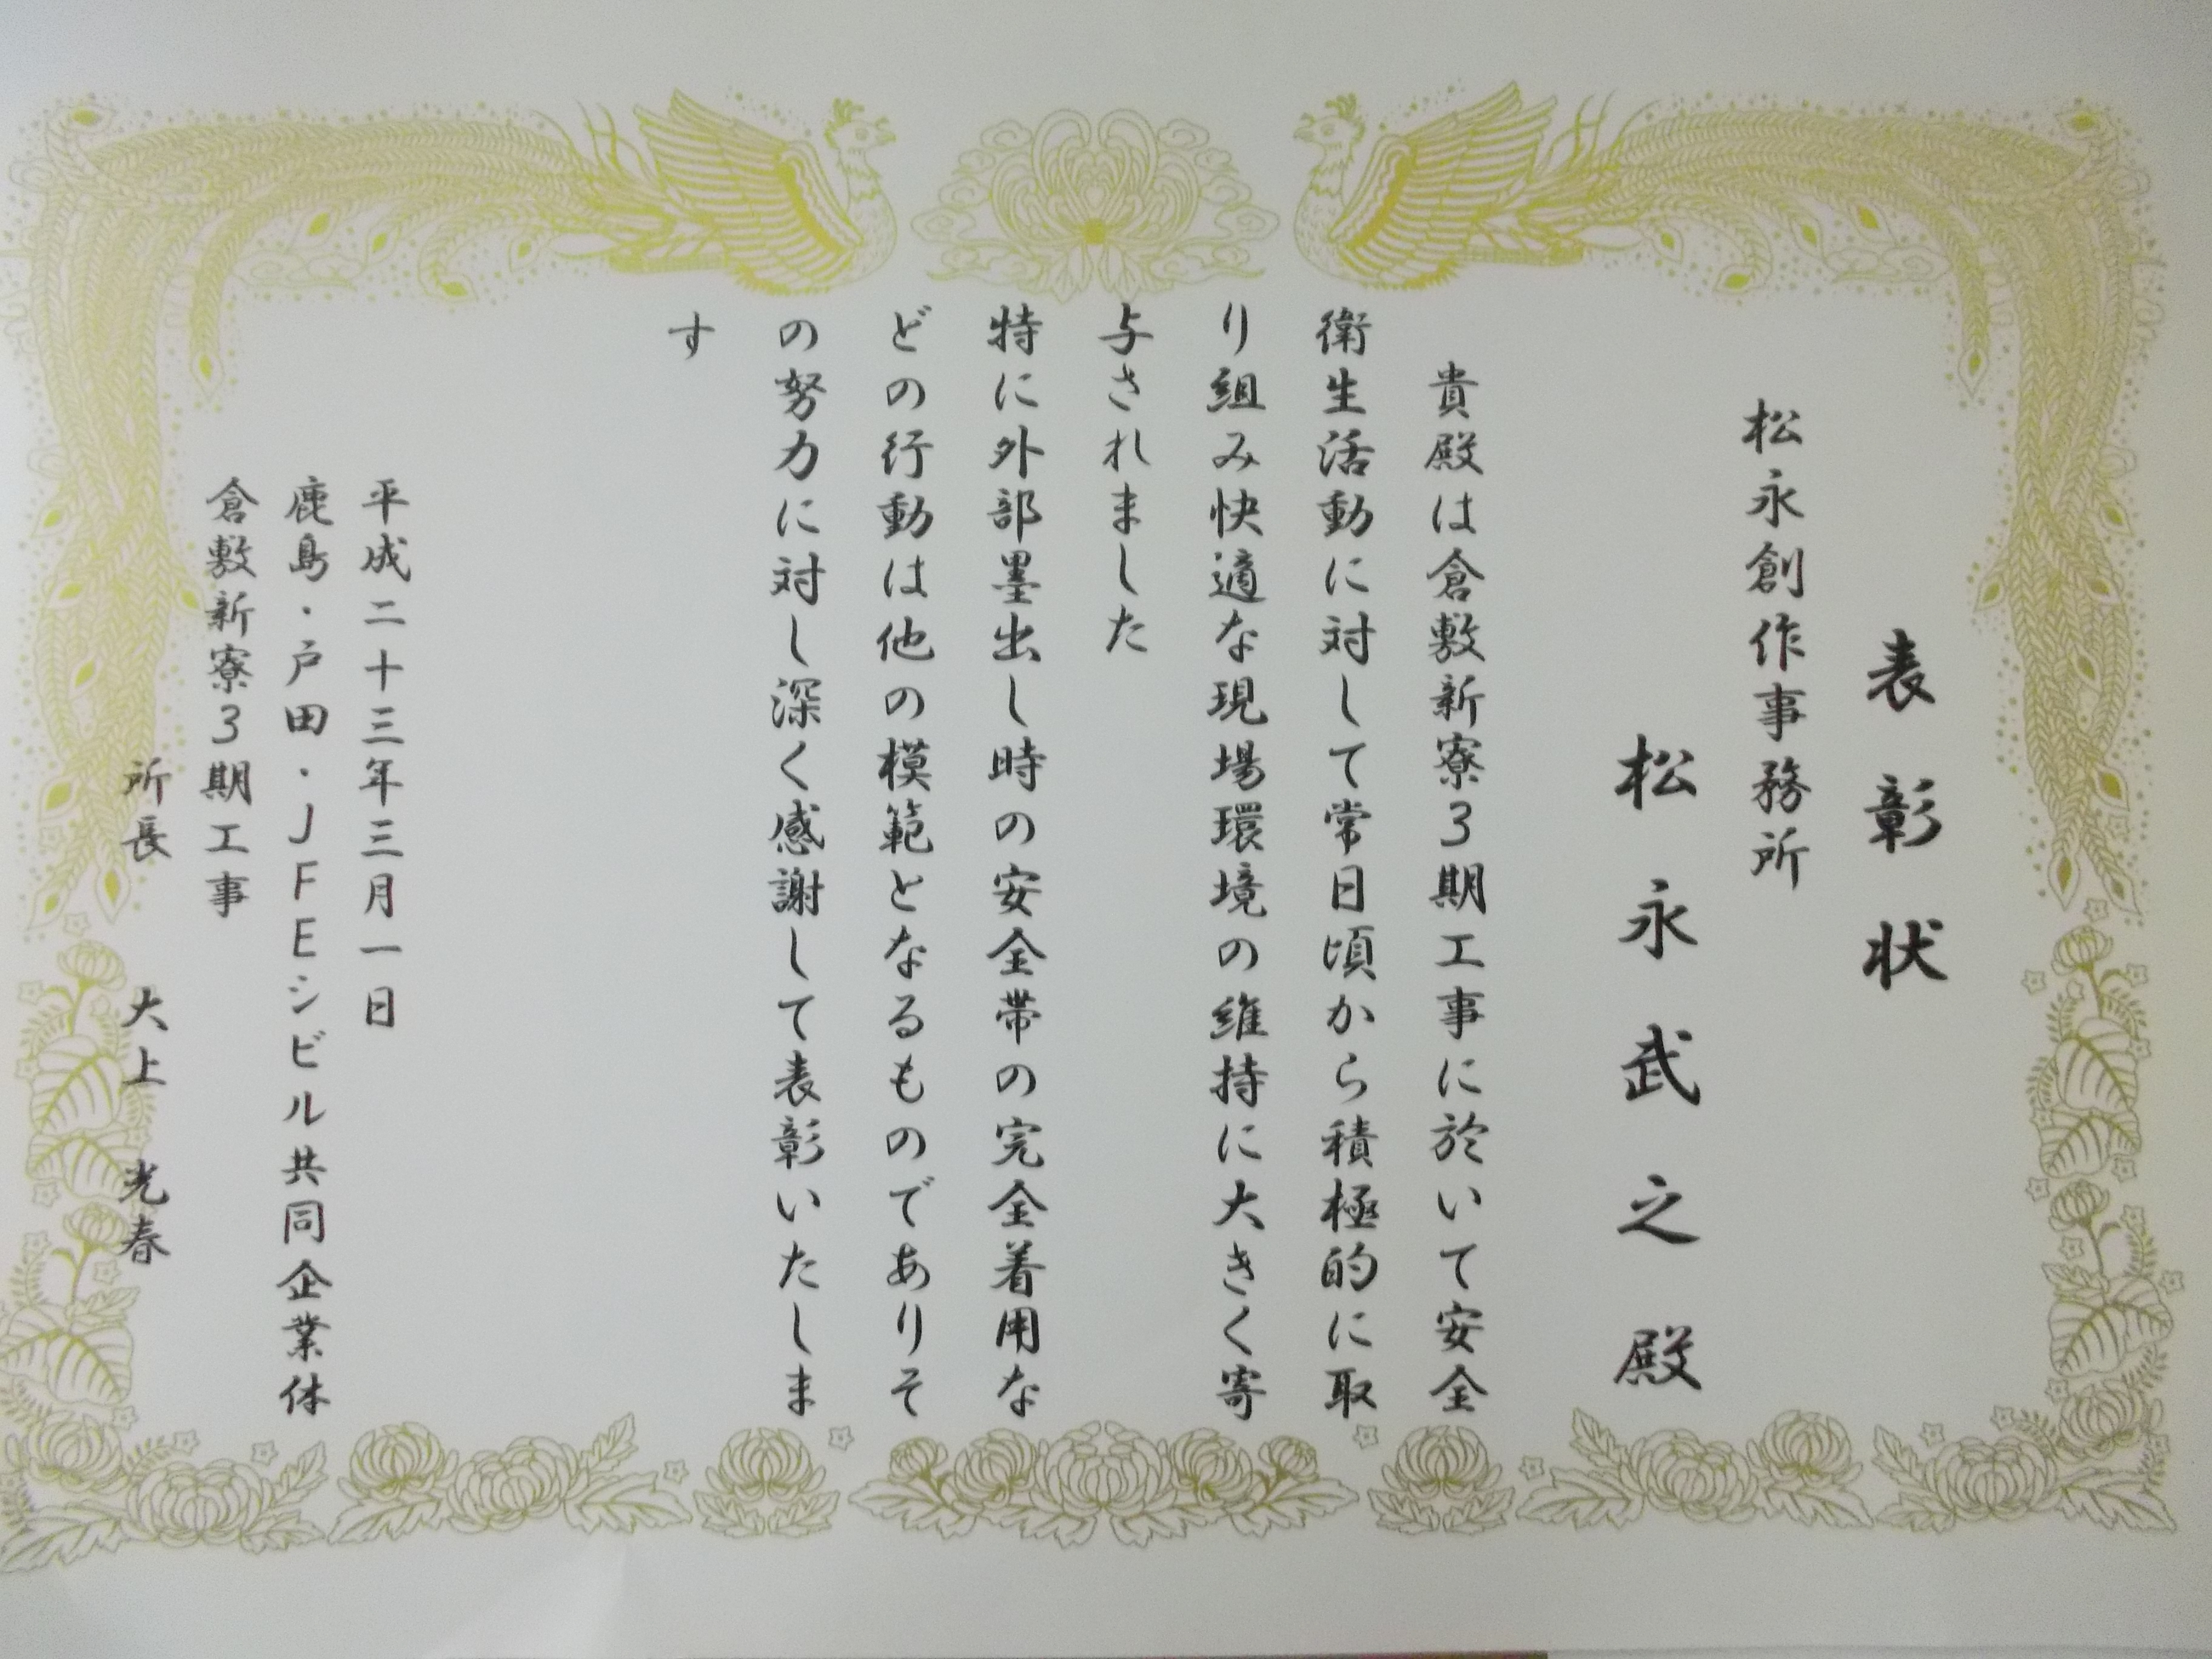 表彰状
松永創作事務所
松永武之殿
貴殿は倉敷新寮3期工事に於いて安全
衛生活動に対して常日頃から積極的に取
り組み快適な現場環境の維持に大きく寄
与されました
特に外部墨出し時の安全帯の完全着用な
どの行動は他の模範となるものでありそ
の努力に対し深く感謝して表彰いたしま
す
平成二十三年三月一日
鹿島・戸田・JFEシビル共同企業体
倉敷新寮3期工事
所長 大上 光春